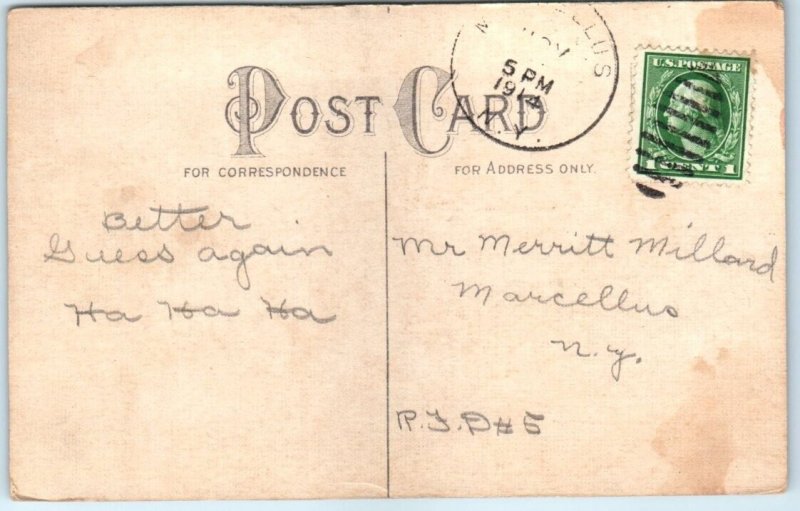 POST CARD
5 PM
1914
N.Y.
U.S. POSTAGE
1 CENT 1
FOR CORRESPONDENCE
FOR ADDRESS ONLY.
Better
Guess again
Ha Ha Ha
Mr Merritt Millard
Marcellus
N.Y.
R.F.D #5